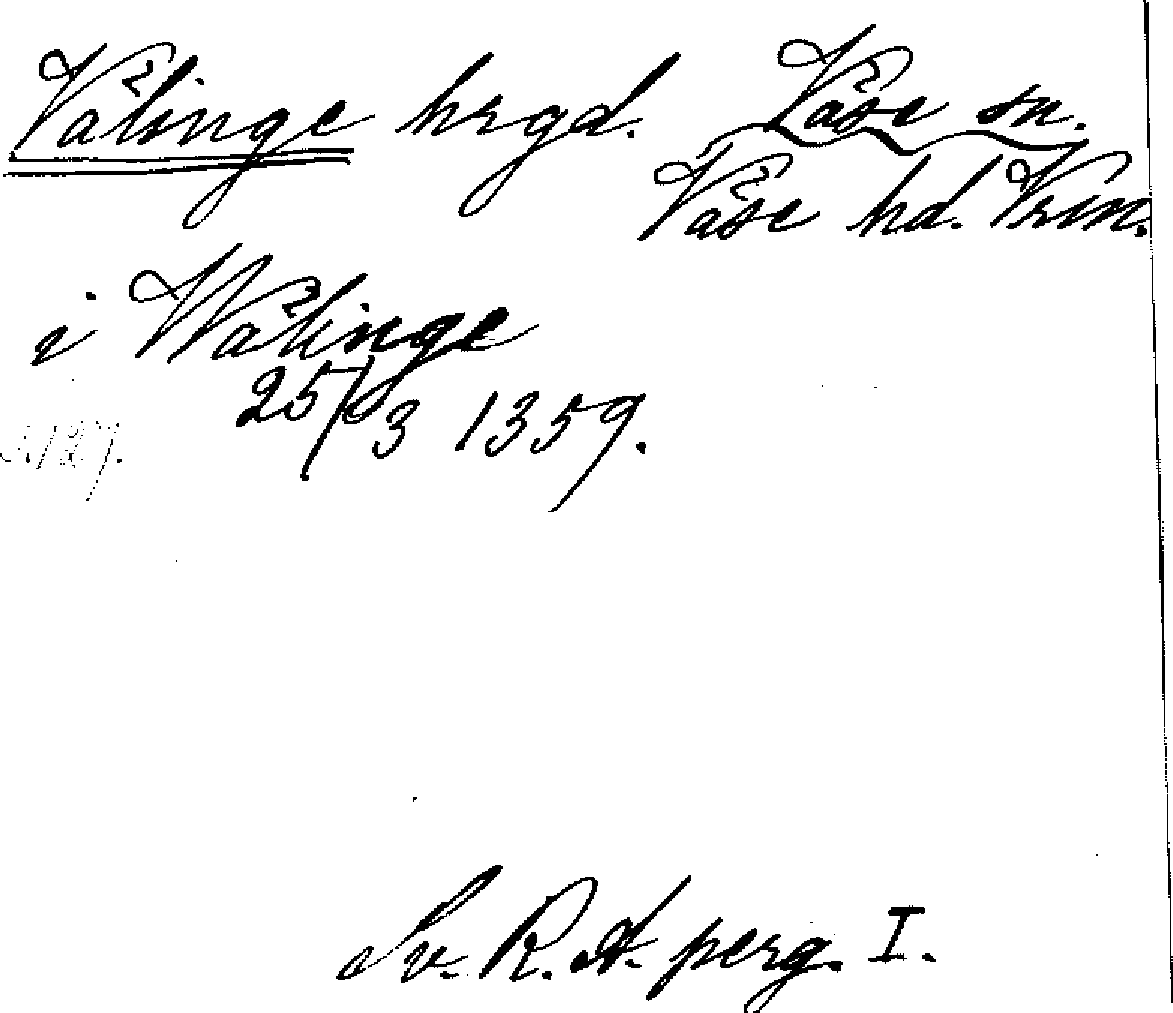 Välinge hrgd. Väse sn.
Väse hd. Vrm.
i Wälinge
25/3 1359.
127.
Sv. R. A. perg. I.